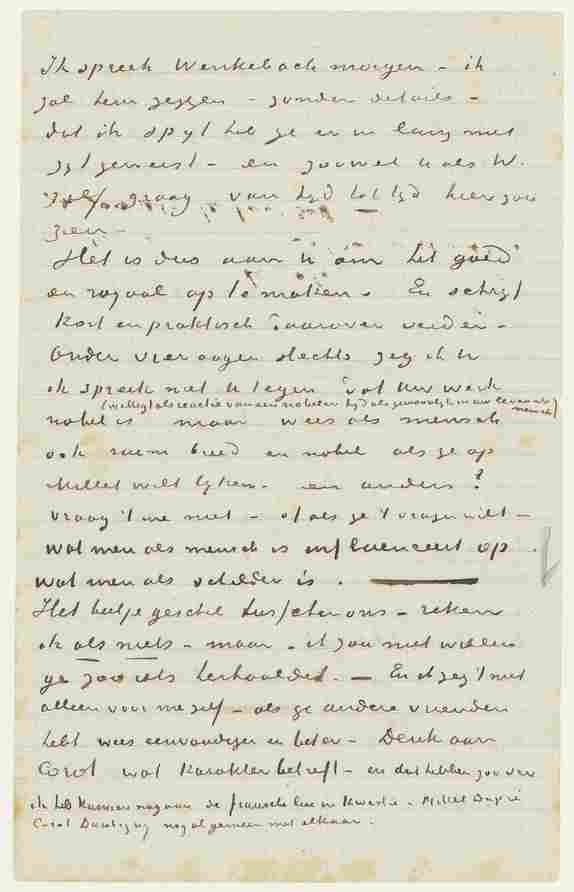 Ik spreek Wenkebach morgen – ik
zal hem zeggen – zonder details –
dat ik spyt heb ge er in lang niet
zyt geweest – en zoowel u als W.
zelf graag van tyd tot tyd hier zou
zien –
Het is dus aan U om het goed
en royaal op te maken. En schryf
kort en praktisch daarover verder.
Onder vier oogen slechts zeg ik U
ik spreek niet U tegen dat Uw werk
(welligt als reactie van een nobeler tyd als gewoonlyk in uw leven als mensch)
nobel is maar wees als mensch
ook ruim breed en nobel als ge op
Millet wilt lyken. en anders?
vraag 't me niet – of als ge 't vragen wilt –
wat men als mensch is influenceert op
wat men als schilder is.
Het heele geschil tusschen ons – reken
ik als niets – maar – ik zou niet willen
ge zoo iets herhaaldet. – En ik zeg 't niet
alleen voor me zelf – als ge andere vrienden
hebt wees eenvoudiger en beter – Denk aan
Corot wat karakter betreft – en dat hebben zoo ver
ik heb kunnen nagaan de fransche lui in kwestie – Millet Dupré
Corot Daubigny nog al gemeen met elkaar.